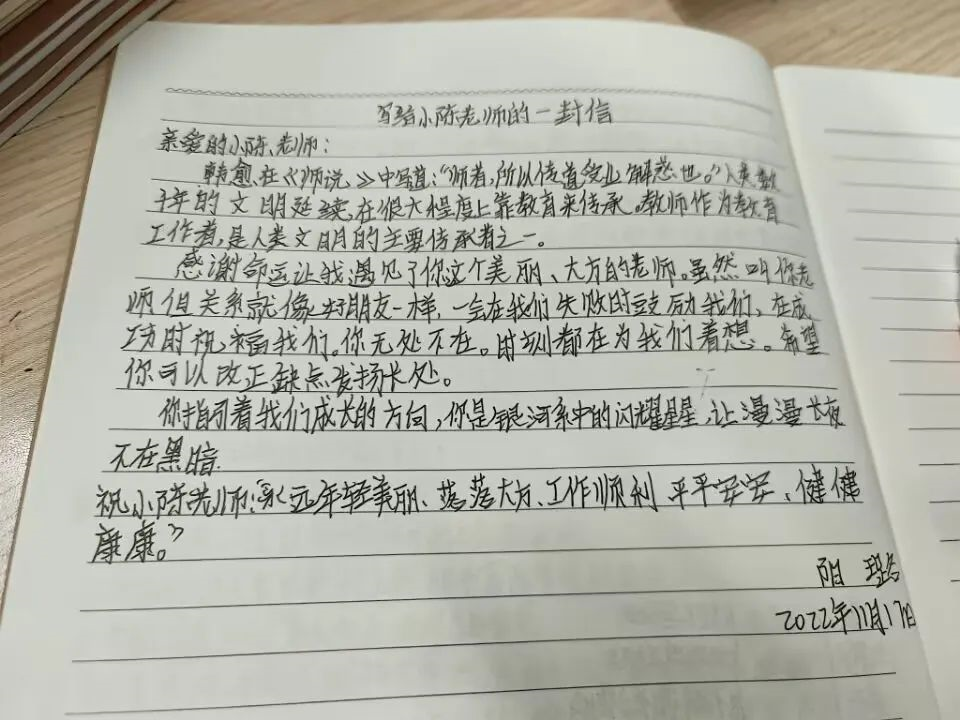 写给小陈老师的一封信
亲爱的小陈老师:
韩愈在《师说》中写道:“师者,所以传道受业解惑也。”人类数
千年的文明延续,在很大程度上靠教育来传承。教师作为教育
工作者,是人类文明的主要传承者之一。
感谢命运让我遇见了你这个美丽、大方的老师。虽然叫你老
师但关系就像好朋友一样,一会在我们失败时鼓励我们,在成
功时祝福我们。你无处不在。时刻都在为我们着想。希望
你可以改正缺点发扬长处。
你指引着我们成长的方向,你是银河系中的闪耀星星,让漫漫长夜
不在黑暗.
祝小陈老师:“永远年轻美丽、落落大方、工作顺利、平平安安、健健
康康。”
阳
2022年11月17日